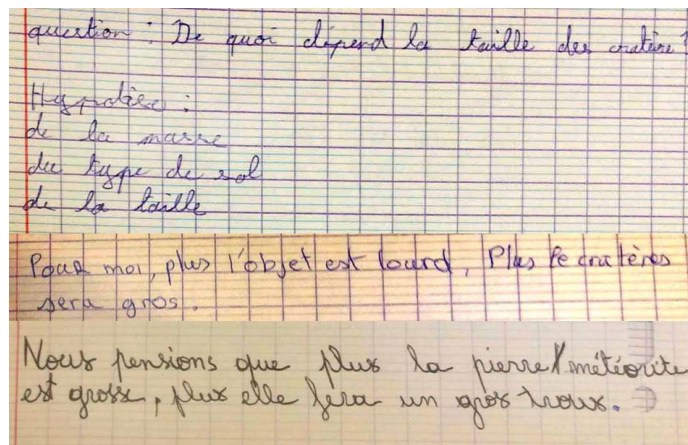 question : De quoi dépend la taille des cratère ?
Hypotèse :
de la masse
du type de sol
de la taille
Pour moi, plus l'objet est lourd, Plus le cratères
sera gros.
Nous pensions que plus la pierre/météorite
est grosse, plus elle fera un gros troux.